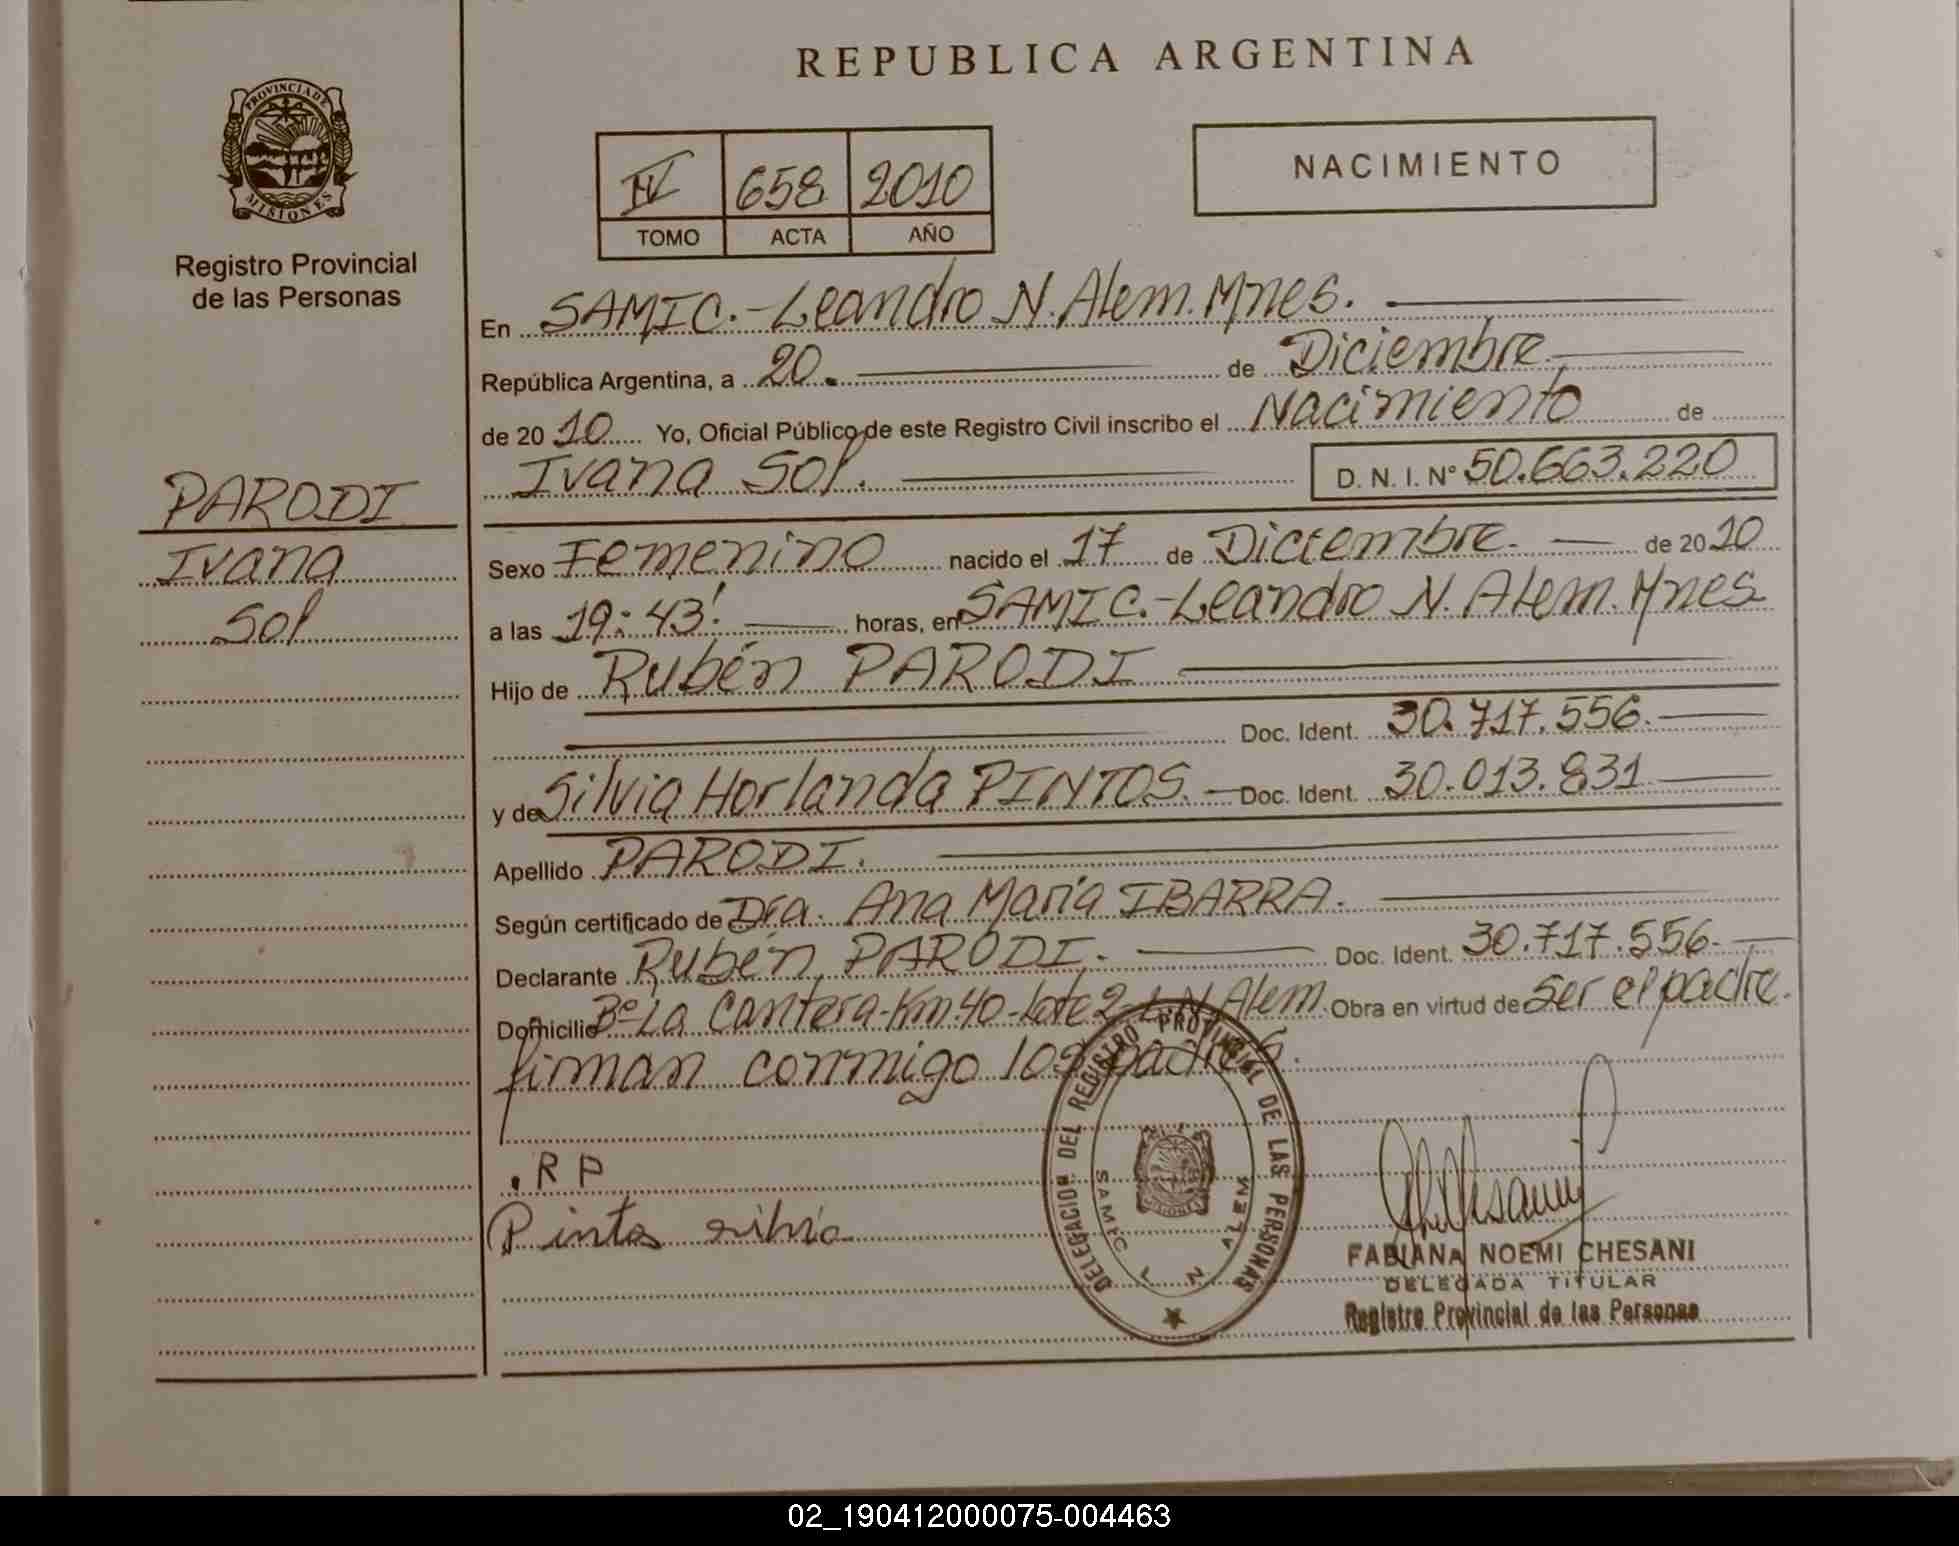 REPUBLICA ARGENTINA
PROVINCIA DE
MISIONES
Registro Provincial
de las Personas
IV 658 2010
TOMO ACTA AÑO
NACIMIENTO
En SAMIC.-Leandro N. Alem. Mnes.
República Argentina, a 20. de Diciembre
de 2010 Yo, Oficial Público de este Registro Civil inscribo el Nacimiento de
Ivana Sol. D. N. I. Nº 50.663.220
PARODI
Ivana
Sol
Sexo Femenino nacido el 17 de Diciembre. de 2010
a las 19:43' horas, en SAMIC.-Leandro N. Alem. Mnes
Hijo de Rubén PARODI
Doc. Ident. 30.717.556.
y de Silvia Horlanda PINTOS. Doc. Ident. 30.013.831
Apellido PARODI.
Según certificado de Dra. Ana María IBARRA.
Declarante Rubén PARODI. Doc. Ident. 30.717.556.
Domicilio Bº La Cantera-Km 40-Lote 2-L.N. Alem. Obra en virtud de ser el padre.
firman conmigo los padres.
.RP
Pintos silvia
DELEGACION DEL REGISTRO PROVINCIAL DE LAS PERSONAS
SAMIC L N ALEM
MISIONES
FABIANA NOEMI CHESANI
DELEGADA TITULAR
Registro Provincial de las Personas
02_190412000075-004463